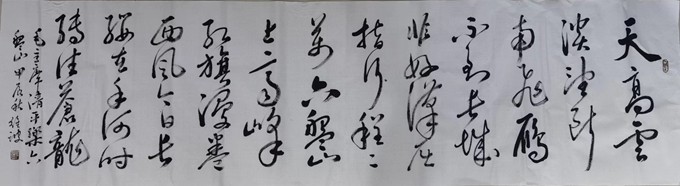 天高雲
淡望斷
南飛鴈
不到長城
非好漢屈
指行程二
萬六盤山
上高峰
紅旗漫卷
西風今日長
纓在手何時
縛住蒼龍
毛主席清平樂六
盤山甲辰秋